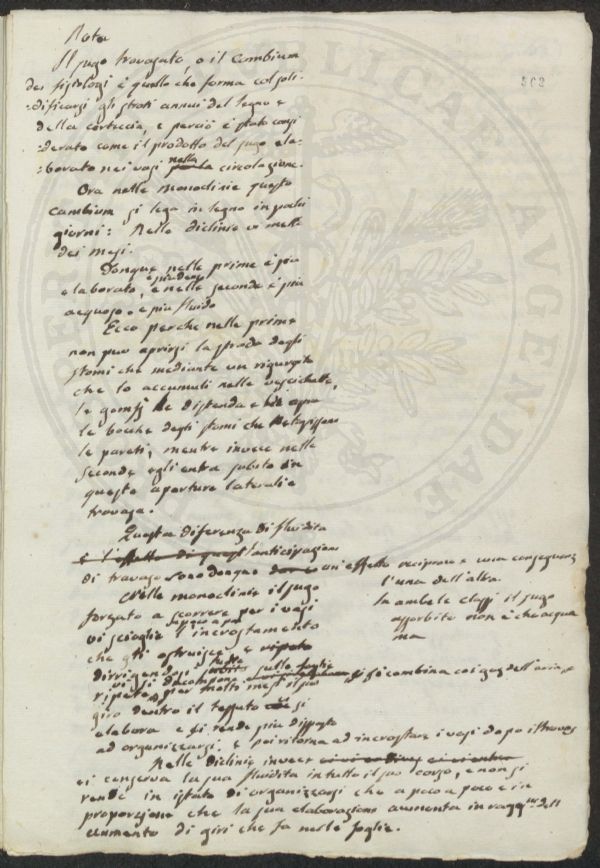 Nota
Il sugo travasato, o il cambium
dei fisiologi è quello che forma col soli-
-dificarsi gli strati annui del legno e
della corteccia, e perciò è stato consi
-derato come il prodotto del sugo ela-
-borato nei vasi nella circolazione.
Ora nelle monoclinie questo
cambium si lega in legno in pochi
giorni: Nelle diclinie vi mette
dei mesi.
Donque nelle prime è più
elaborato, e più denso, e nelle seconde è più
acquoso e più fluido
Ecco perche nelle prime
non può aprirsi la strada degli
stomi che mediante un rigurgito
che lo accumuli nelle vescichette,
le gonfi le distenda e apra
le bocche degli stomi che
le pareti, mentre invece nelle
seconde egli entra subito in
queste aperture laterali e
travasa.
Questa diferenza di fluidità
e l'effetto di quest' anticipazione
di travaso sono donque un effetto reciproco e una conseguenza
l'una dell'altra.
Nelle monoclinie il sugo
In ambele classi il sugo
forzato a scorrere per i vasi
assorbito non è che acqua
vi scioglie a poco a poco l'incrostamento
ma
che gli ostruisce, e
dirrigendosi sulle foglie
ivi si decompone si combina coi gas dell'aria, e
ripete per molti mesi il suo
giro dentro il tessuto si
elabora e si rende più disposto
ad organizzarsi, e poi ritorna ad incrostare i vasi dopo il travaso
Nelle diclinie invece
si conserva la sua fluidità in tutto il suo corso, e non si
rende in istato di organizzarsi che a poco a poco e in
proporzione che la sua elaborazione aumenta in ragg.ne dell
aumento di giri che fa nelle foglie.